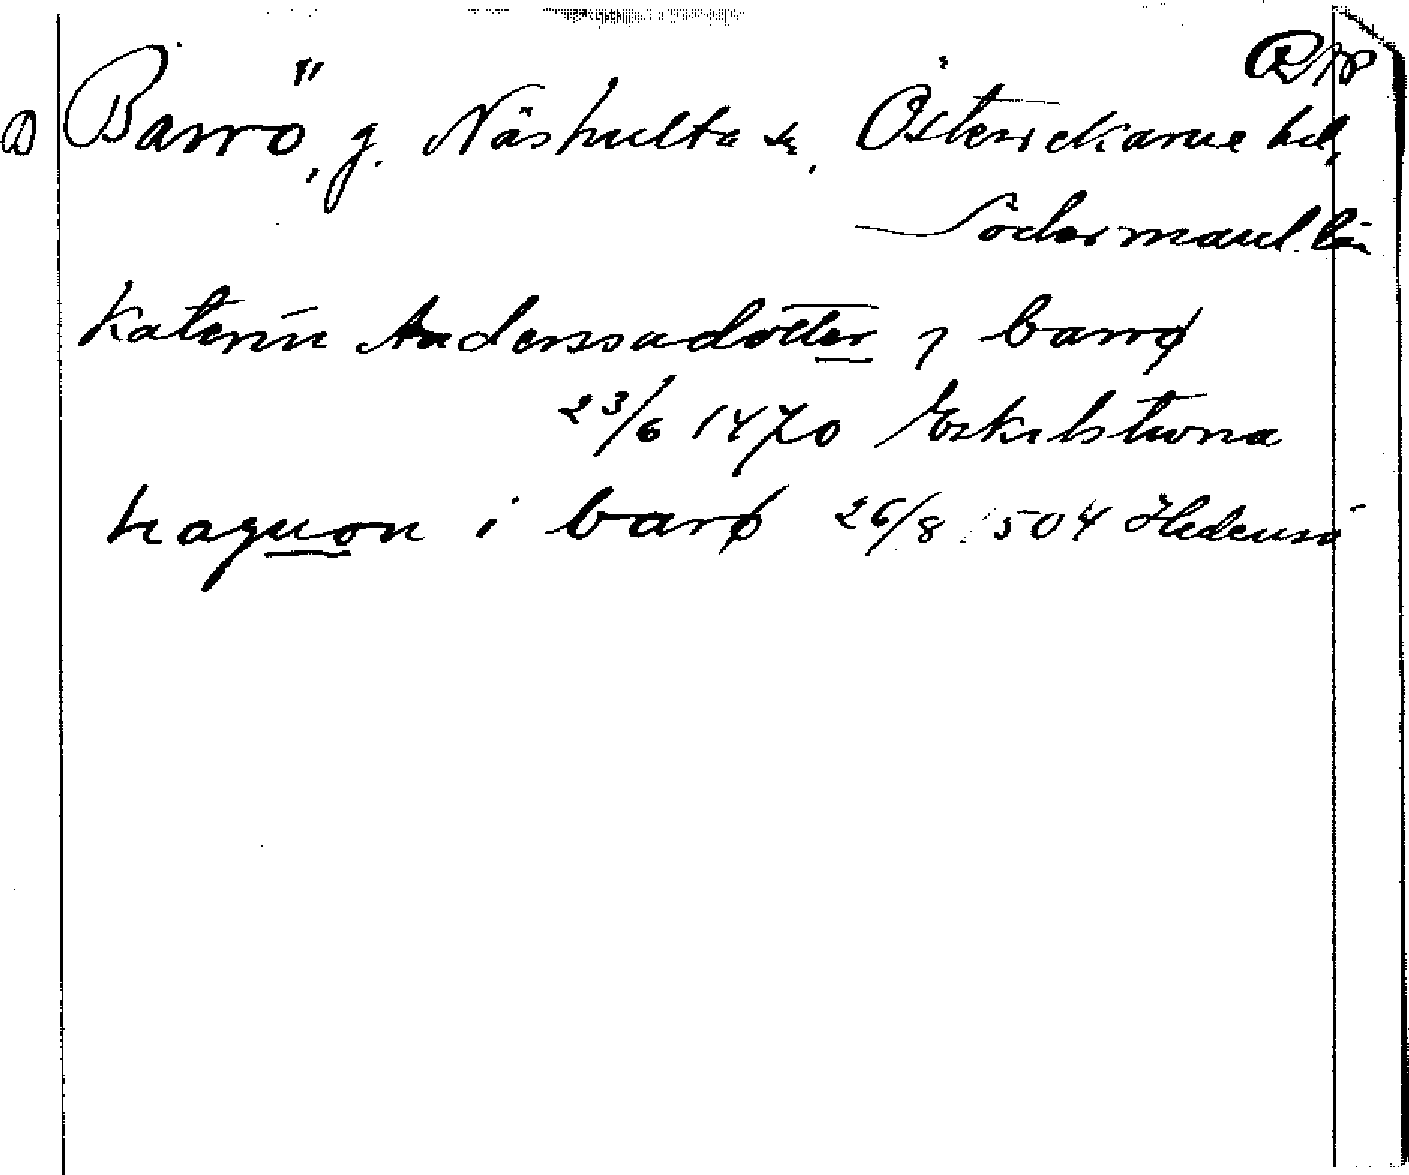 Barrö, g. Näshulta sn, Österrekarne hd,
Södermanl. län
Katerin Anderssadotter j barrø
23/6 1470 Eskilstuna
haquon i barø 26/8 1504 Hedensö